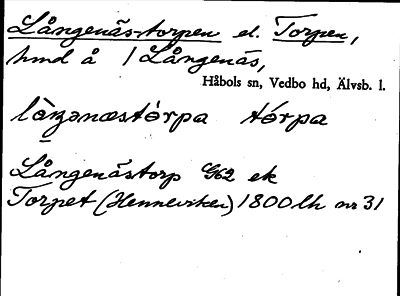 Långenäs-torpen el. Torpen,
hmd å 1 Långenäs,
Håbols sn, Vedbo hd, Älvsb. l.
lòŋənæstórpa tórpa
Långenästorp G62 ek
Torpet (Henneviken) 1800 lh nr 31